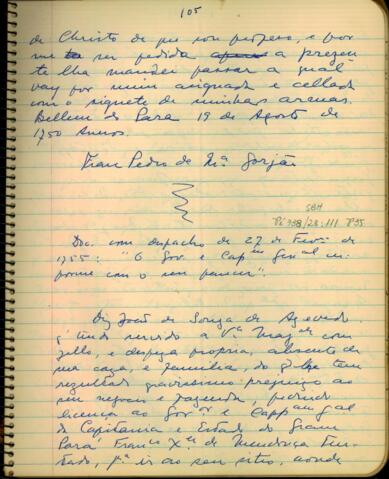 105
de Christo de que sou professo, e por
me ser pedida a prezen
te lha mandei passar a qual
vay por mim asignada e cellada
com o signete de minhas armas.
Bellem do Pará 19 de Agosto de
1750 Annos.
Fran Pedro de Mça Gorjão
SBH
Pi 798/23:111 P35
Doc. com despacho de 27 de Fevro de
1755: "O Gov. e Capm Genal in
forme com o seu parecer".
Diz João de Souza de Azevedo
q' tendo servido a Va Magde com
zello, e despeza propria, absente de
sua caza, e familia, do q' lhe tem
rezultado gravissimo prejuizo ao
seu negocio e fazenda, pedindo
licença ao Govor e Cappam gal
da Capitania e Estado do Gram
Pará Franco Xer de Mendonça Fur-
tado, pa ir ao seu sitio, aonde